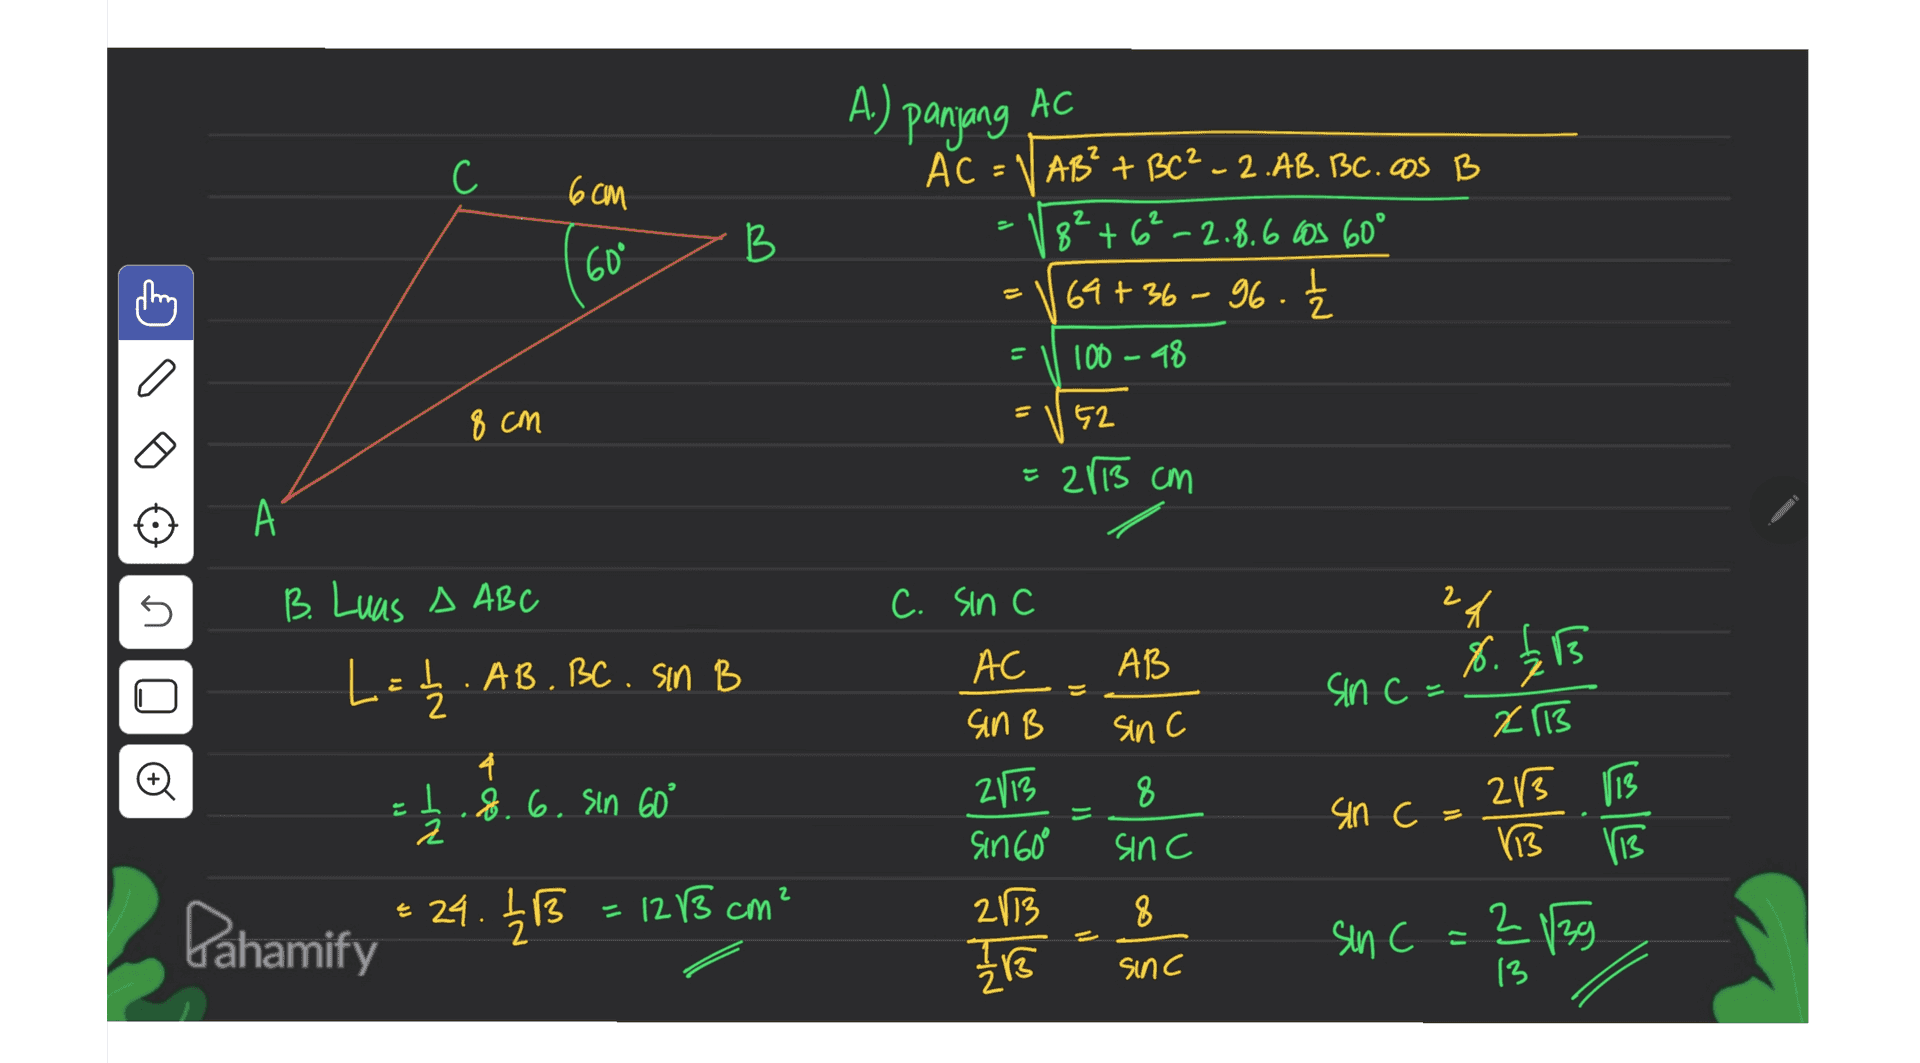 C
6 cm
60°
B
8 cm
A
A.) panjang AC
AC = √AB² + BC² - 2.AB.BC.cos B
= √8² + 6² - 2.8.6 cos 60°
= √64 + 36 - 96 . 1/2
= √100 - 48
= √52
= 2√13 cm
B. Luas Δ ABC
L = 1/2 . AB . BC . sin B
4
= 1/2 . 8 . 6 . sin 60°
= 24 . 1/2 √3 = 12√3 cm²
C. sin C
AC / sin B = AB / sin C
2√13 / sin 60° = 8 / sin C
2√13 / 1/2 √3 = 8 / sin C
2 4
sin C = 8 . 1/2 √3 / 2√13
sin C = 2√3 / √13 . √13 / √13
sin C = 2/13 √39
Pahamify